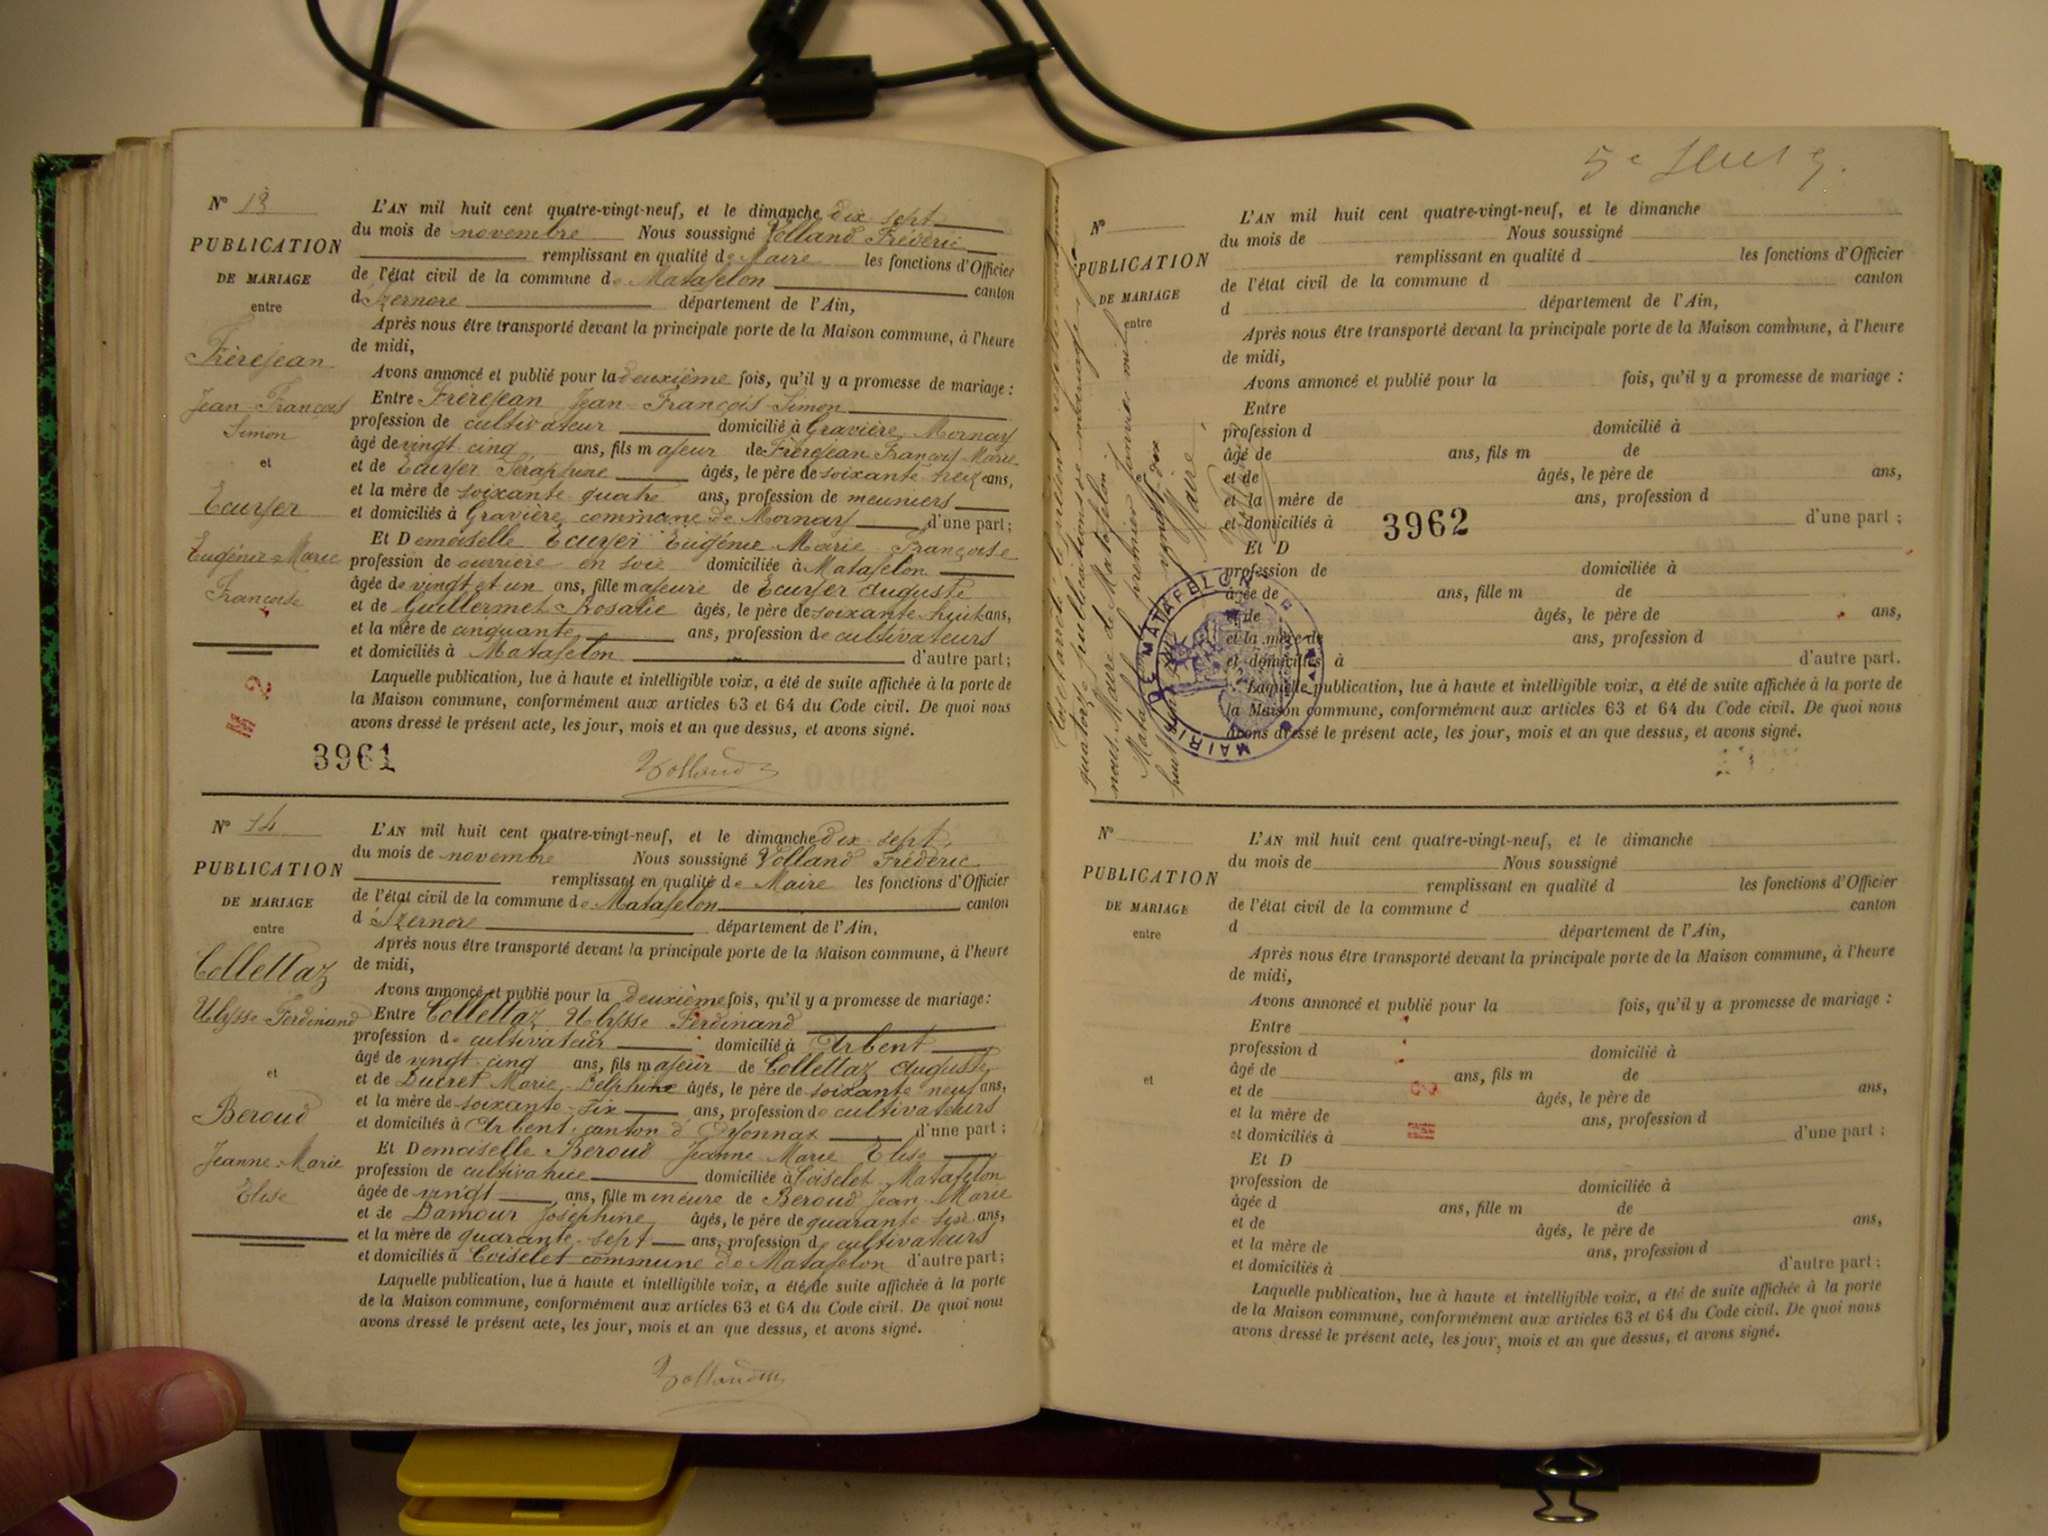 N° 13
PUBLICATION
DE MARIAGE
entre
Frèrejean
Jean François
Simon
et
Ecuyer
Eugénie Marie
Françoise
2
3961
L'AN mil huit cent quatre-vingt-neuf, et le dimanche dix sept
du mois de novembre Nous soussigné Volland Frédéric
remplissant en qualité de Maire les fonctions d'Officier
de l'état civil de la commune de Matafelon canton
d'Izernore département de l'Ain,
Après nous être transporté devant la principale porte de la Maison commune, à l'heure
de midi,
Avons annoncé et publié pour la deuxième fois, qu'il y a promesse de mariage :
Entre Frèrejean Jean-François-Simon
profession de cultivateur domicilié à Gravière, Mornay
âgé de vingt cinq ans, fils majeur de Frèrejean François Marie
et de Ecuyer Séraphine âgés, le père de soixante treize ans,
et la mère de soixante quatre ans, profession de meuniers
et domiciliés à Gravière commune de Mornay d'une part ;
Et Demoiselle Ecuyer Eugénie Marie Françoise
profession de ouvrière en soie domiciliée à Matafelon
âgée de vingt et un ans, fille majeure de Ecuyer Auguste
et de Guillermet Rosalie âgés, le père de soixante huit ans,
et la mère de cinquante ans, profession de cultivateurs
et domiciliés à Matafelon d'autre part ;
Laquelle publication, lue à haute et intelligible voix, a été de suite affichée à la porte de
la Maison commune, conformément aux articles 63 et 64 du Code civil. De quoi nous
avons dressé le présent acte, les jour, mois et an que dessus, et avons signé.
Volland
N° 14
PUBLICATION
DE MARIAGE
entre
Collettaz
Ulysse Ferdinand
et
Beroud
Jeanne-Marie
Elise
L'AN mil huit cent quatre-vingt-neuf, et le dimanche dix sept
du mois de novembre Nous soussigné Volland Frédéric
remplissant en qualité de Maire les fonctions d'Officier
de l'état civil de la commune de Matafelon canton
d'Izernore département de l'Ain,
Après nous être transporté devant la principale porte de la Maison commune, à l'heure
de midi,
Avons annoncé et publié pour la deuxième fois, qu'il y a promesse de mariage :
Entre Collettaz Ulysse Ferdinand
profession de cultivateur domicilié à Arbent
âgé de vingt cinq ans, fils majeur de Collettaz Auguste
et de Ducret Marie Delphine âgés, le père de soixante neuf ans,
et la mère de soixante-six ans, profession de cultivateurs
et domiciliés à Arbent, canton d'Oyonnax d'une part ;
Et Demoiselle Beroud Jeanne Marie Elise
profession de cultivatrice domiciliée à Coiselet Matafelon
âgée de vingt ans, fille mineure de Beroud Jean-Marie
et de Damour Joséphine âgés, le père de quarante-six ans,
et la mère de quarante-sept ans, profession de cultivateurs
et domiciliés à Coiselet commune de Matafelon d'autre part ;
Laquelle publication, lue à haute et intelligible voix, a été de suite affichée à la porte
de la Maison commune, conformément aux articles 63 et 64 du Code civil. De quoi nous
avons dressé le présent acte, les jour, mois et an que dessus, et avons signé.
Volland
N°
PUBLICATION
DE MARIAGE
entre
L'AN mil huit cent quatre-vingt-neuf, et le dimanche
du mois de Nous soussigné
remplissant en qualité d les fonctions d'Officier
de l'état civil de la commune d canton
d département de l'Ain,
Après nous être transporté devant la principale porte de la Maison commune, à l'heure
de midi,
Avons annoncé et publié pour la fois, qu'il y a promesse de mariage :
Entre
profession d domicilié à
âgé de ans, fils m de
et de âgés, le père de ans,
et la mère de ans, profession d
et domiciliés à d'une part ;
3962
Et D
profession de domiciliée à
âgée de ans, fille m de
et de âgés, le père de ans,
et la mère de ans, profession d
et domiciliés à d'autre part.
Laquelle publication, lue à haute et intelligible voix, a été de suite affichée à la porte de
la Maison commune, conformément aux articles 63 et 64 du Code civil. De quoi nous
avons dressé le présent acte, les jour, mois et an que dessus, et avons signé.
Clos et arrêté le présent registre contenant
quatorze publications de mariage par
nous, Maire de Matafelon.
Matafelon, premier Janvier mil
huit cent quatre vingt-dix
Le Maire
MAIRIE DE MATAFELON
AIN
N°
PUBLICATION
DE MARIAGE
entre
et
L'AN mil huit cent quatre-vingt-neuf, et le dimanche
du mois de Nous soussigné
remplissant en qualité d les fonctions d'Officier
de l'état civil de la commune d canton
d département de l'Ain,
Après nous être transporté devant la principale porte de la Maison commune, à l'heure
de midi,
Avons annoncé et publié pour la fois, qu'il y a promesse de mariage :
Entre
profession d domicilié à
âgé de ans, fils m de
et de âgés, le père de ans,
et la mère de ans, profession d
et domiciliés à d'une part ;
Et D
profession de domiciliée à
âgée d ans, fille m de
et de âgés, le père de ans,
et la mère de ans, profession d
et domiciliés à d'autre part ;
Laquelle publication, lue à haute et intelligible voix, a été de suite affichée à la porte
de la Maison commune, conformément aux articles 63 et 64 du Code civil. De quoi nous
avons dressé le présent acte, les jour, mois et an que dessus, et avons signé.